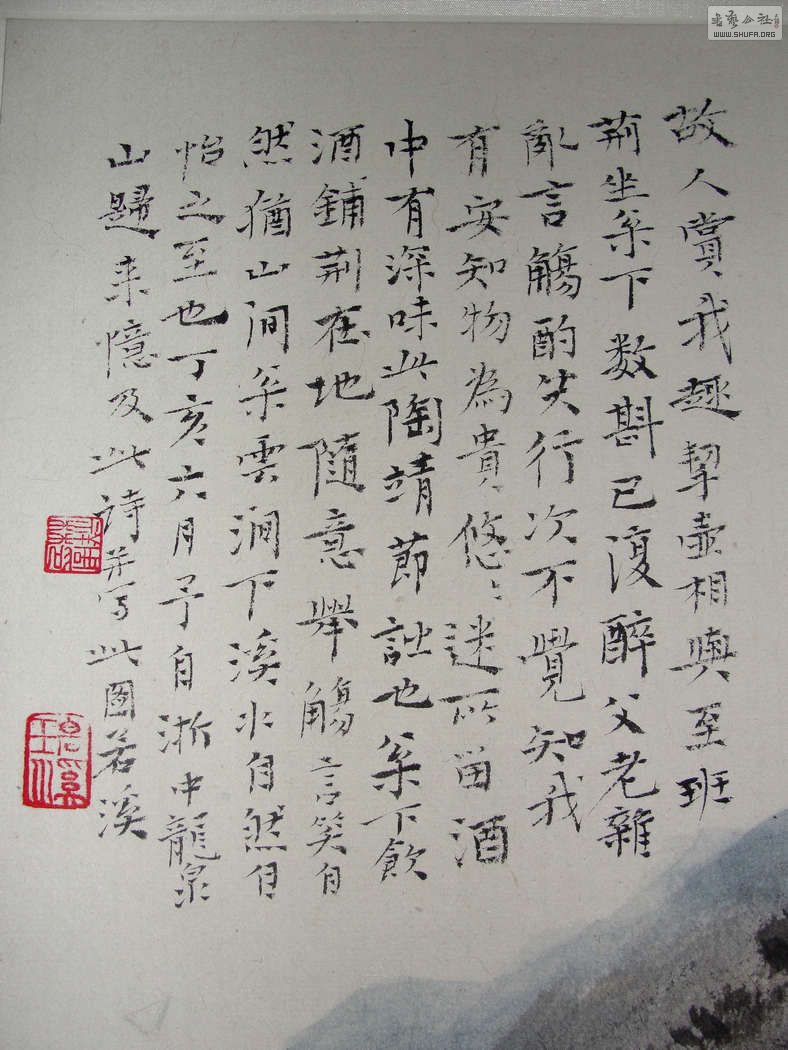 故人賞我趣挈壺相與至班
荊坐枀下数斟已復醉父老雜
亂言觴酌失行次不覺知我
有安知物為貴悠〻迷所留酒
中有深味此陶靖節詩也枀下飲
酒鋪荊在地隨意舉觴言笑自
然猶山间枀雲澗下溪水自然自
怡之至也丁亥六月予自浙中龍泉
山歸来憶及此詩并写此圖若溪
書藝公社
WWW.SHUFA.ORG